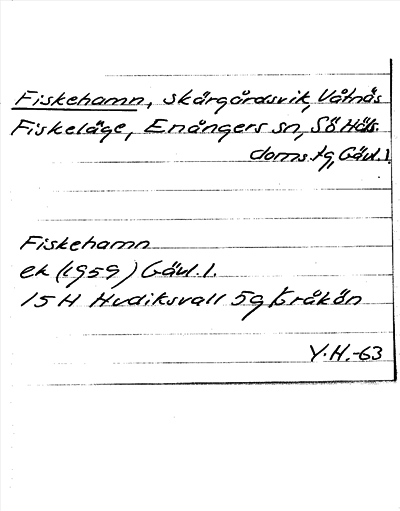 Fiskehamn, skärgårdsvik, Våtnäs
Fiskeläge, Enångers sn, Sö Häls.
doms. tg, Gävl. l.
Fiskehamn
ek (1959) Gävl. l.
15 H Hudiksvall 5g Kråkön
Y.H.-63